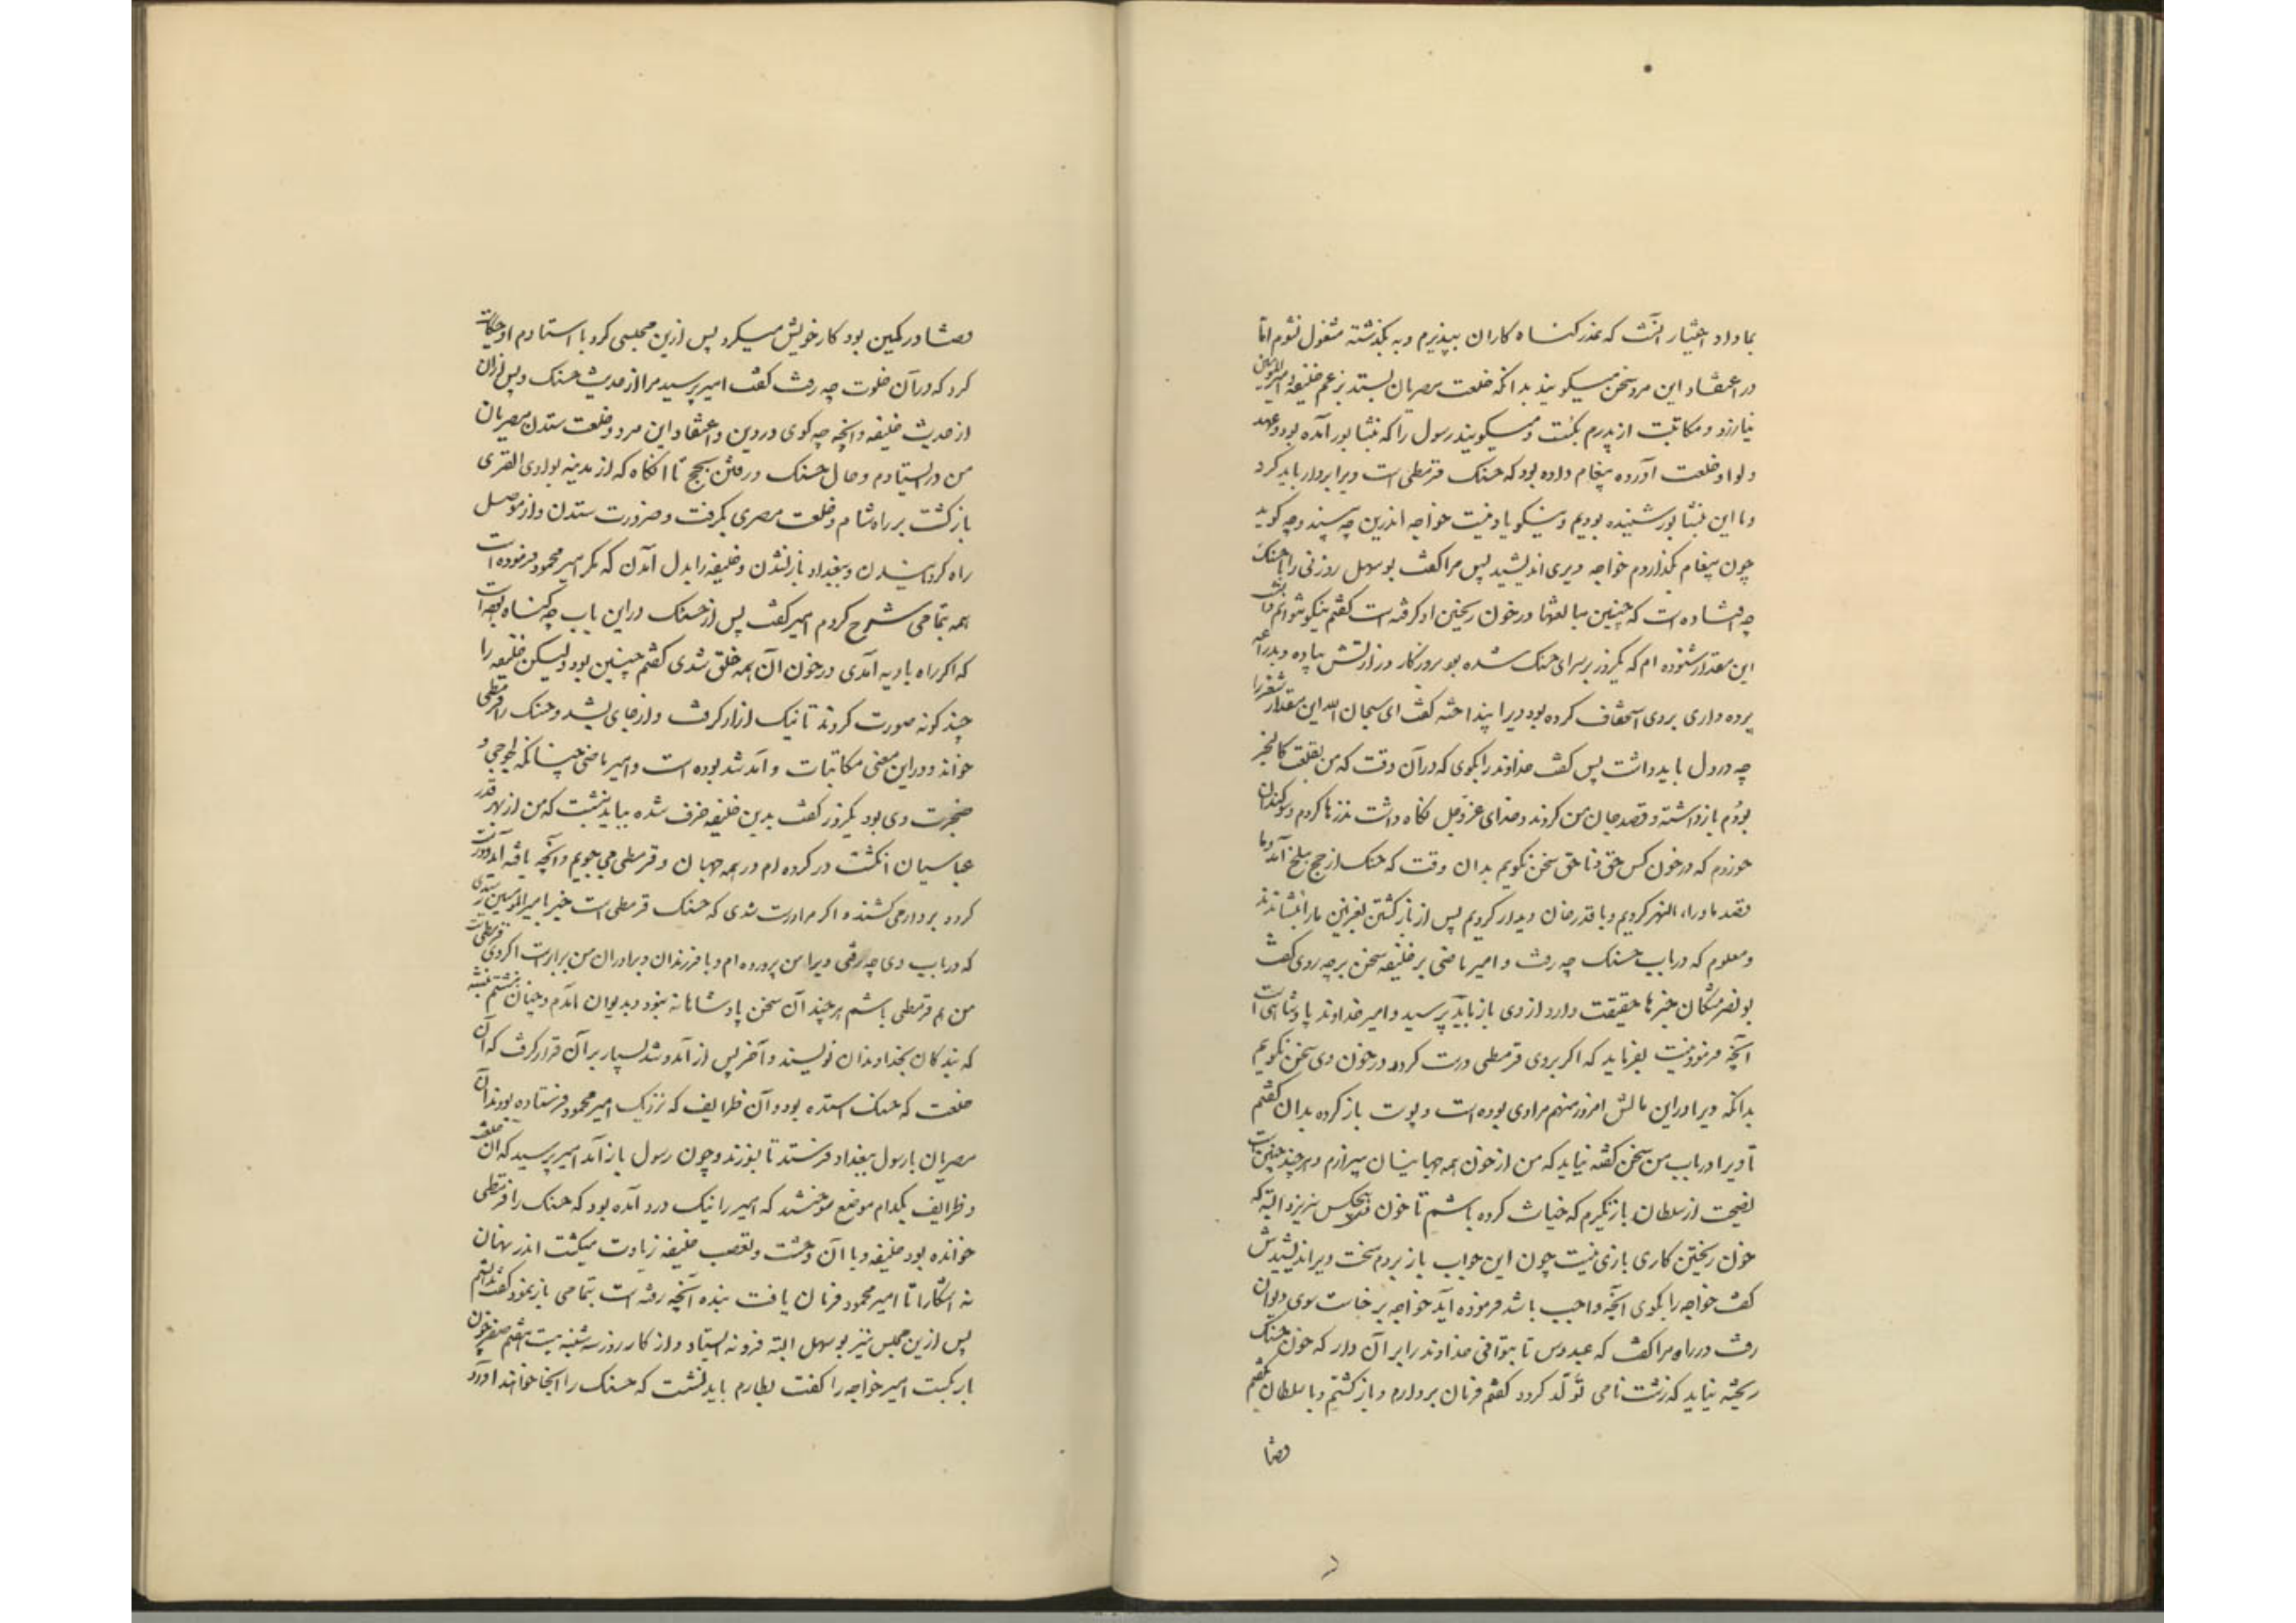 بما داد اختیار آنست که عذر گناه کاران بپذیرم و به گذشته مشغول نشوم اما
در اعتقاد این مرد سخن میگویند بدانکه خلعت مصریان بستد بر غم خلیفه و امیرالمومنین
نیازرد و مکاتبت از پدرم بگست و میگویند رسول را که بنشابور آمده بود و عهد
و لوا و خلعت آورده پیغام داده بود که حسنک قرمطی است ویرا بردار باید کرد
و ما این بنشابور شنیده بودیم و نیکو یاد نیست خواجه اندرین چه بیند و چه گوید
چون پیغام بگذاردم خواجه دیری اندیشید پس مرا گفت بوسهل زوزنی را با حسنک
چه افتاده است که چنین مبالغتها در خون ریختن او گرفته است گفتم نیکو نتوانم دانست
این مقدار شنوده ام که یکروز بر سرای حسنک شده بود بروزگار وزارتش پیاده و بدراعه
پرده داری بروی استخفاف کرده بود ویرا بینداخته گفت ای سبحان الله این مقدار شغر را
چه در دل باید داشت پس گفت خداوند را بگوی که در آن وقت که من بقلعت کالنجر
بودم بازداشته و قصد جان من کردند و خدای عز و جل نگاه داشت نذرها کردم و سوگندان
خوردم که در خون کس حق و ناحق سخن نگویم بدان وقت که حسنک از حج ببلخ آمد و ما
قصد ماوراء النهر کردیم و با قدرخان دیدار کردیم پس از بازگشتن بغزنین ما را بنشاندند
و معلوم که در باب حسنک چه رفت و امیر ماضی بر خلیفه سخن بر چه روی گفت
بونصر مشکان خبرها حقیقت دارد از وی باز باید پرسید و امیر خداوند پادشاهی است
آنچه فرمودنیست بفرماید که اگر بروی قرمطی درست گردد در خون وی سخن نگویم
بدانکه ویرا در این مالش امروز منهم مرادی بوده است و پوست باز کرده بدان گفتم
تا ویرا در باب من سخن گفته نیاید که من از خون همه جهانیان بیزارم و هر چند چنین است
نصیحت از سلطان باز نگیرم که خیانت کرده باشم تا خون هیچکس نریزد البته که
خون ریختن کاری بازی نیست چون این جواب باز بردم سخت دیر اندیشید پس
گفت خواجه را بگوی آنچه واجب باشد فرموده آید خواجه برخاست سوی دیوان
رفت در راه مرا گفت که عبدوس تا بتوانی خداوند را بر آن دار که خون حسنک
ریخته نیاید که زشت نامی تولد گردد گفتم فرمان بردارم و بازگشتم و با سلطان بگفتم
قضا
قضا در کمین بود کار خویش میکرد پس ازین مجلسی کرد با استادم او حکایت
کرد که در آن خلوت چه رفت گفت امیر پرسید مرا از حدیث حسنک و پس از آن
از حدیث خلیفه و آنچه چه گوی در دین و اعتقاد این مرد و خلعت ستدن مصریان
من در ایستادم و حال حسنک و رفتن بحج تا آنگاه که از مدینه بوادی القری
بازگشت بر راه شام و خلعت مصری بگرفت و ضرورت ستدن و از موصل
راه گردانیدن و ببغداد باز نشدن و خلیفه را بدل آمدن که مگر امیر محمود فرموده است
همه بتمامی شرح کردم امیر گفت پس از حسنک در این باب چه گناه بوده است
که اگر راه بادیه آمدی در خون آن همه خلق شدی گفتم چنین بود و لیکن خلیفه را
چند گونه صورت کردند تا نیک ازار گرفت و از جای بشد و حسنک را قرمطی
خواند و در این معنی مکاتبات و آمد شد بوده است و امیر ماضی چنانکه لجوجی و
ضجرت وی بود یکروز گفت بدین خلیفه خرف شده بباید نبشت که من از بهر قدر
عباسیان انگشت در کرده ام در همه جهان و قرمطی می جویم و آنچه یافته آید و درست
گردد بر دار می کشند و اگر مرا درست شدی که حسنک قرمطی است خبر بامیرالمومنین رسیدی
که در باب وی چه رفتی ویرا من پرورده ام و با فرزندان و برادران من برابرست اگر وی قرمطی است
من هم قرمطی باشم هر چند آن سخن پادشاهانه نبود و بدیوان آمدم و چنان نبشتم نبشته
که بندگان بخداوندان نویسند و آخر پس از آمد و شد بسیار بر آن قرار گرفت که آن
خلعت که حسنک استده بود و آن ظرایف که نزدیک امیر محمود فرستاده بودند آن
مصریان با رسول ببغداد فرستد تا بسوزند و چون رسول باز آمد امیر پرسید که آن خلعت
و ظرایف بکدام موضع سوختند که امیر را نیک درد آمده بود که حسنک را قرمطی
خوانده بود خلیفه و با آن وحشت و تعصب خلیفه زیادت میگشت اندر نهان
نه آشکارا تا امیر محمود فرمان یافت بنده آنچه رفته است بتمامی باز نمود گفت بدانستم
پس ازین مجلس نیز بوسهل البته فرو نه ایستاد و از کار روز سه شنبه بیست هفتم صفر چون
بار بگست امیر خواجه را گفت بطارم باید نشست که حسنک را آنجا خواهند آورد